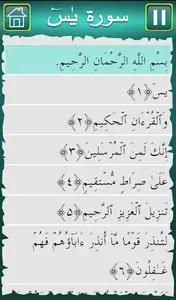 سورة يٰسٓ
بِسْمِ اللَّهِ الرَّحْمَانِ الرَّحِيمِ.
يسٓ ﴿١﴾
وَٱلْقُرْءَانِ ٱلْحَكِيمِ ﴿٢﴾
إِنَّكَ لَمِنَ ٱلْمُرْسَلِينَ ﴿٣﴾
عَلَىٰ صِرَاطٍ مُّسْتَقِيمٍ ﴿٤﴾
تَنزِيلَ ٱلْعَزِيزِ ٱلرَّحِيمِ ﴿٥﴾
لِتُنذِرَ قَوْمًا مَّآ أُنذِرَ ءَابَآؤُهُمْ فَهُمْ
غَـٰفِلُونَ ﴿٦﴾